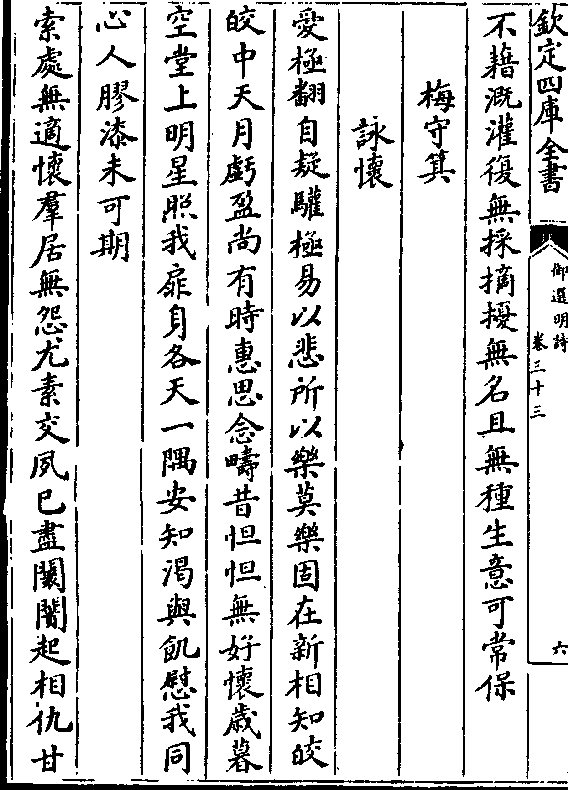 欽定四庫全書
御選明詩
卷三十三
六
不藉溉灌復無採摘擾無名且無種生意可常保
梅守箕
詠懷
愛極翻自疑驩極易以悲所以樂莫樂固在新相知皎
皎中天月虧盈尚有時惠思念疇昔怛怛無好懷歳暮
空堂上明星照我扉身各天一隅安知渴與飢慰我同
心人膠漆未可期
索處無適懷羣居無怨尤素交夙已盡闤闠起相仇甘